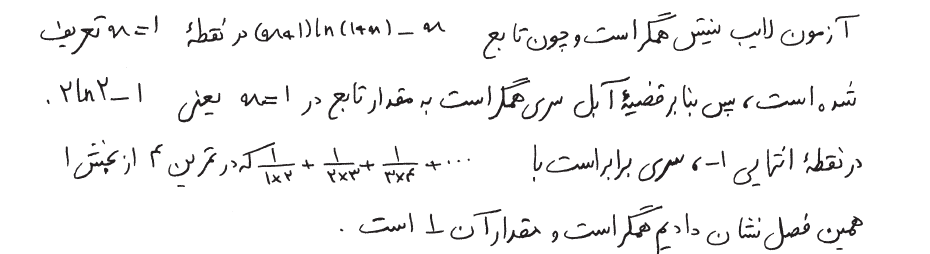 آزمون لایب نیتس همگراست و چون تابع (x+1)ln(1+x) - x در نقطهٔ x=1 تعریف
شده است، پس بنابر قضیهٔ آبل سری همگراست به مقدار تابع در x=1 یعنی ۲ln۲-۱ .
در نقطهٔ انتهایی ۱-، سری برابر است با ۱/۱×۲ + ۱/۲×۳ + ۱/۳×۴ + ... که در تمرین ۴ از بخش ۱
همین فصل نشان دادیم همگراست و مقدار آن ۱ است .